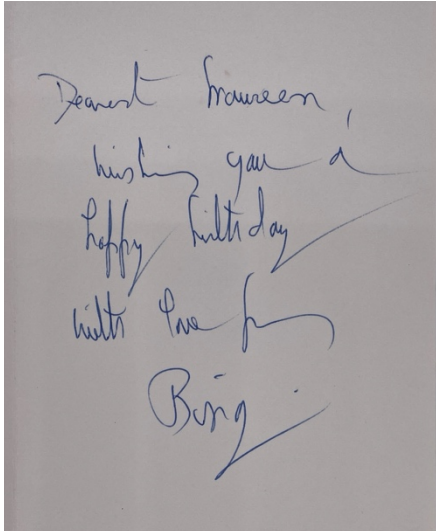 Dearest Maureen,
wishing you a
happy birthday
with love from
Bing